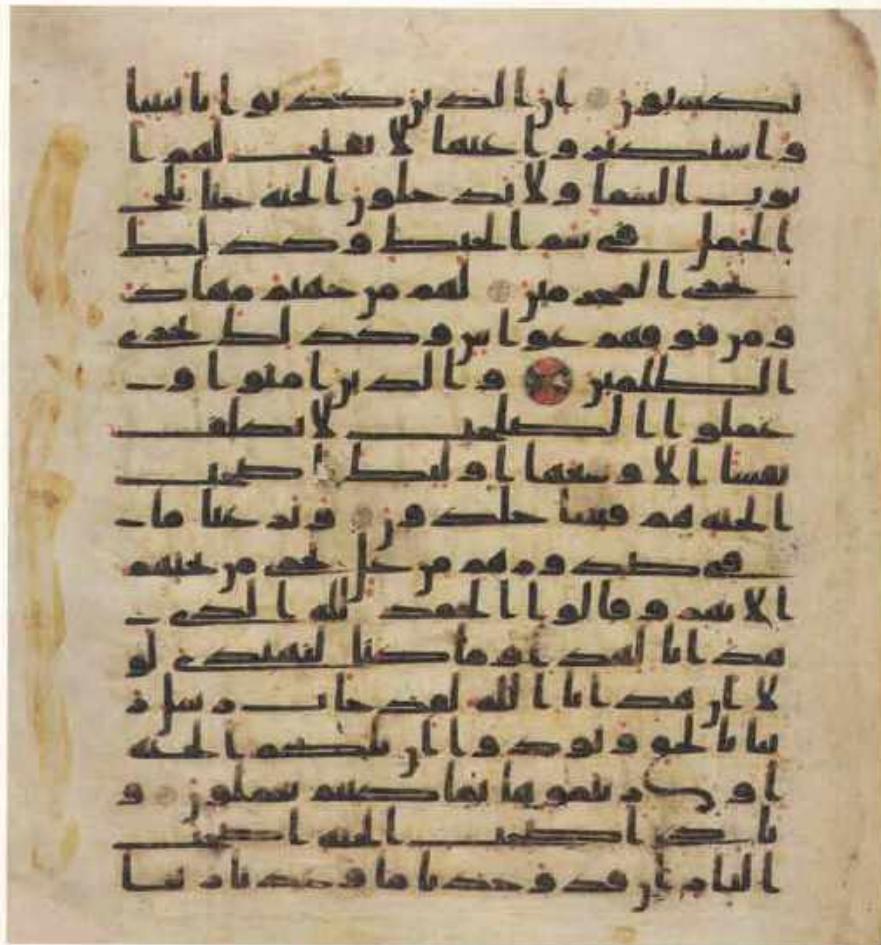 تكسبون ان الذين كذبوا بايتنا
واستكبروا عنها لا تفتح لهم ا
بوب السما ولا يدخلون الجنه حتى يلج
الجمل في سم الخيط وكذلك
نجزي المجرمين لهم من جهنم مهاد
ومن فوقهم غواش وكذلك نجزي
الظلمين والذين امنوا و
عملوا الصلحت لا نكلف
نفسا الا وسعها اوليك اصحب
الجنه هم فيها خلدون ونزعنا ما
في صدورهم من غل تجري من تحتهم
الانهر وقالوا الحمد لله الذي
هدانا لهذا وما كنا لنهتدي لو
لا ان هدانا الله لقد جات رسل ر
بنا بالحق ونودوا ان تلكم الجنه
اورثتموها بما كنتم تعملون و
نادى اصحب الجنه اصحب
النار ان قد وجدنا ما وعدنا ربنا